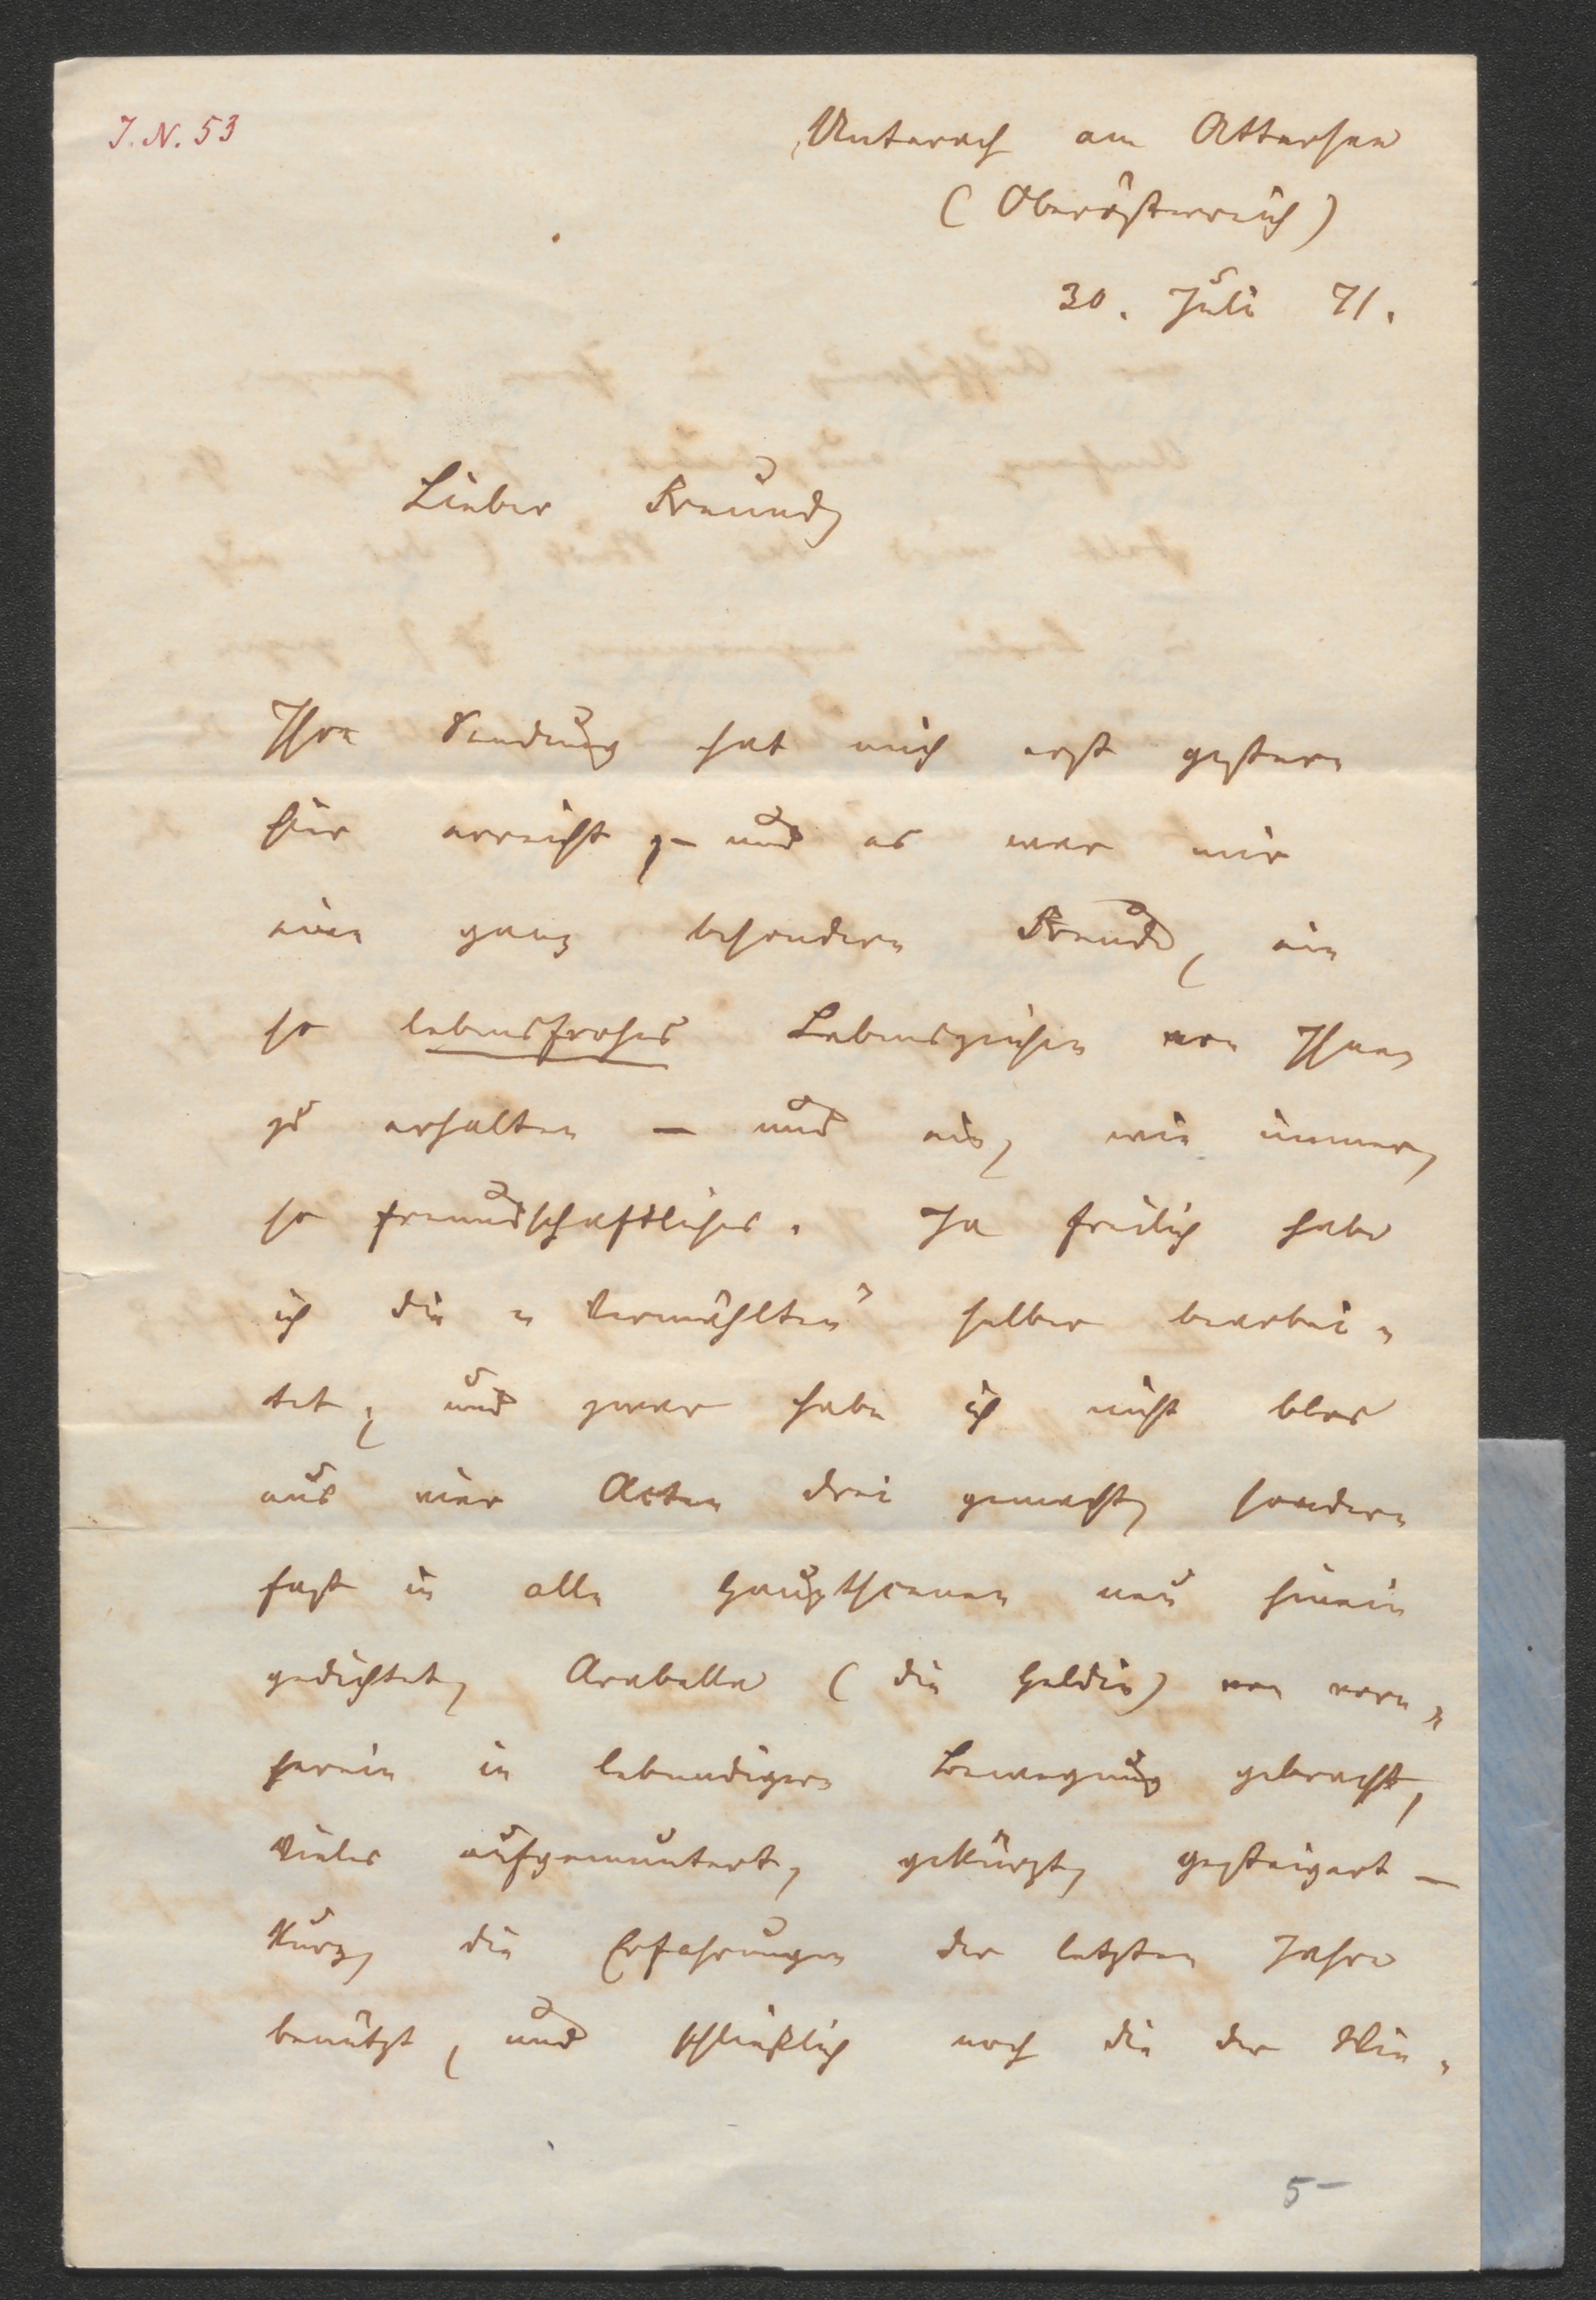 J. N. 53
Unterach am Attersee
(Oberösterreich)
30. Juli 71.
Lieber Freund,
Ihre Sendung hat mich erst gestern
hier erreicht, – und es war mir
eine ganz besondere Freude, ein
so lebensfrohes Lebenszeichen von Ihnen
zu erhalten – und ein, wie immer,
so freundschaftliches. Ja freilich habe
ich die „Vermählten" selber bearbei-
tet, und zwar habe ich nicht blos
aus vier Acten drei gemacht, sondern
fast in alle Hauptscenen neu hinein
gedichtet, Arabella (die Heldin) von vorn-
herein in lebendigere Bewegung gebracht,
Vieles aufgemuntert, gekürzt, gesteigert –
kurz, die Erfahrungen der letzten Jahre
benützt, und schließlich noch die der Wie-
5–